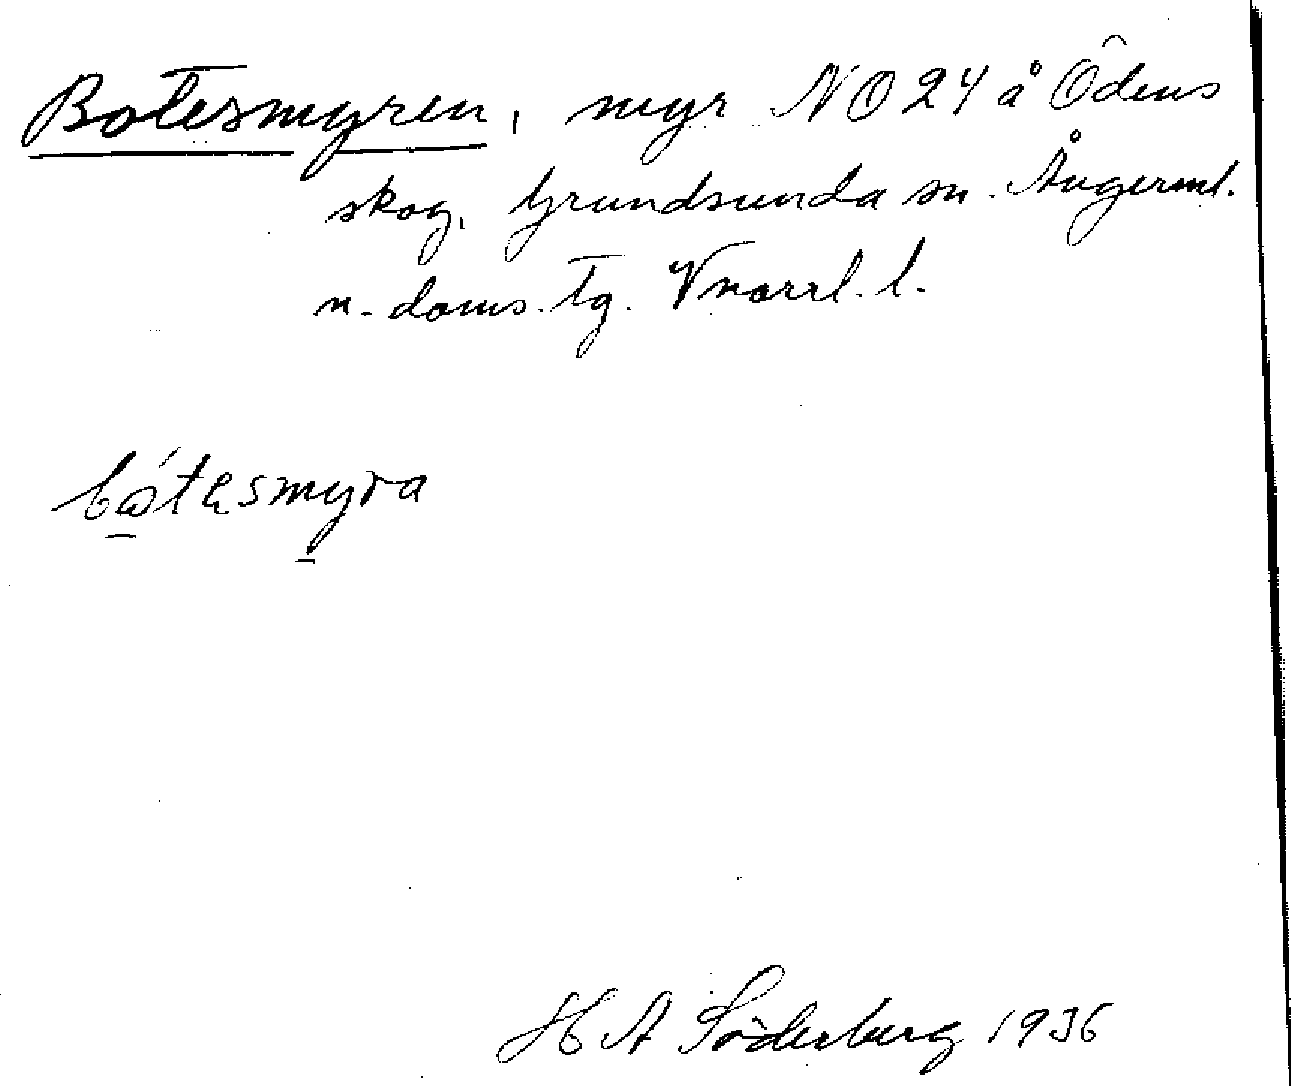 Botesmyren, myr NO 24 å Ödens
skog, Grundsunda sn. Ångerml.
n. doms. tg. Vnorrl. l.
båtesmyra
H A Söderberg 1936